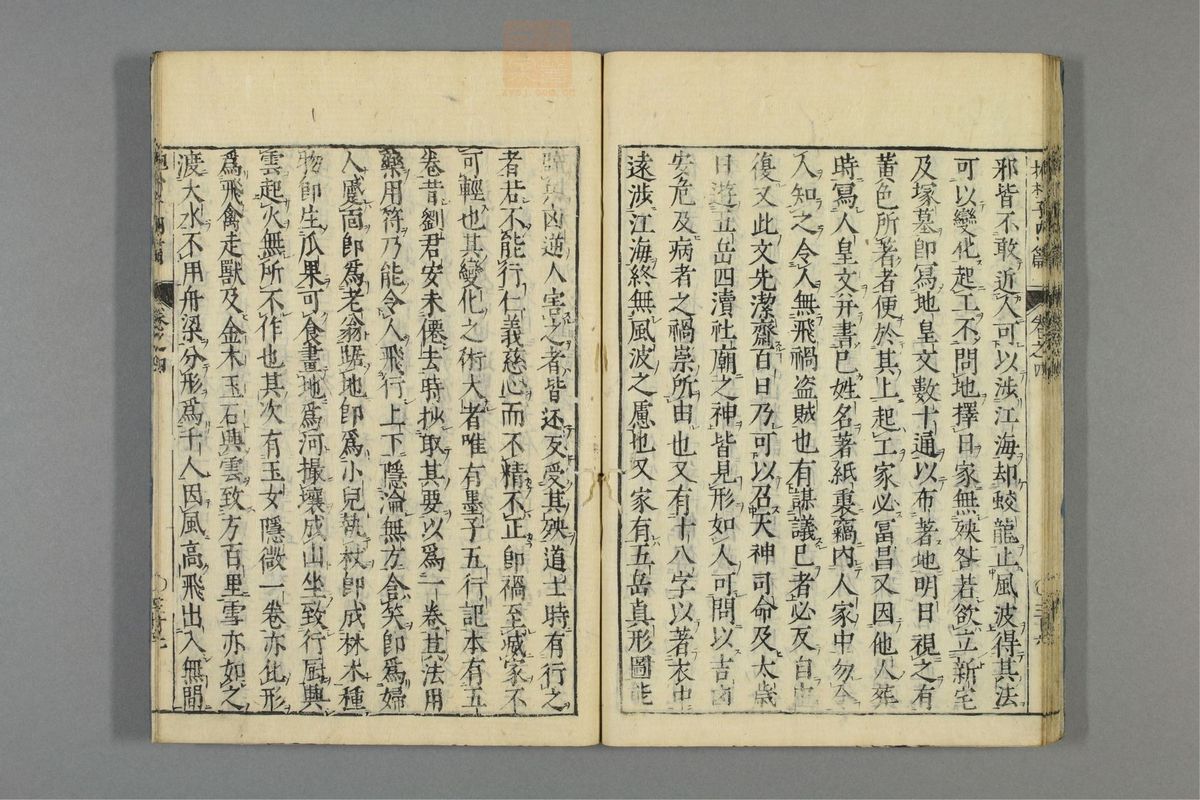 邪皆不敢近人可以渉江海却蛟龍止風波得其法
可以變化起工不問地擇日家無殃咎若欲立新宅
及塚墓即寫地皇文數十通以布著地明日視之有
黃色所著者便於其上起工家必冨昌又因他人葬
時寫人皇文并書己姓名著紙裏竊内人家中勿令
人知之令人無飛禍盗賊也有謀議己者必反自中
復又此文先潔齋百日乃可以召天神司命及太歳
日遊五岳四瀆社廟之神皆見形如人可問以吉凶
安危及病者之禍祟所由也又有十八字以著衣中
遠渉江海終無風波之慮也又家有五岳眞形圖能
辟兵凶逆人害之者皆还反受其殃道士時有行之
者若不能行仁義慈心而不精不正即禍至滅家不
可輕也其變化之術大者唯有墨子五行記本有五
卷昔劉君安未僊去時抄取其要以爲一卷其法用
藥用符乃能令人飛行上下隱淪無方含笑即爲婦
人蹙面即爲老翁踞地即爲小兒執杖即成林木種
物即生瓜果可食畫地爲河撮壤成山坐致行厨興
雲起火無所不作也其次有玉女隱微一卷亦化形
爲飛禽走獸及金木玉石興雲致方百里雪亦如之
渡大水不用舟梁分形爲千人因風高飛出入無間